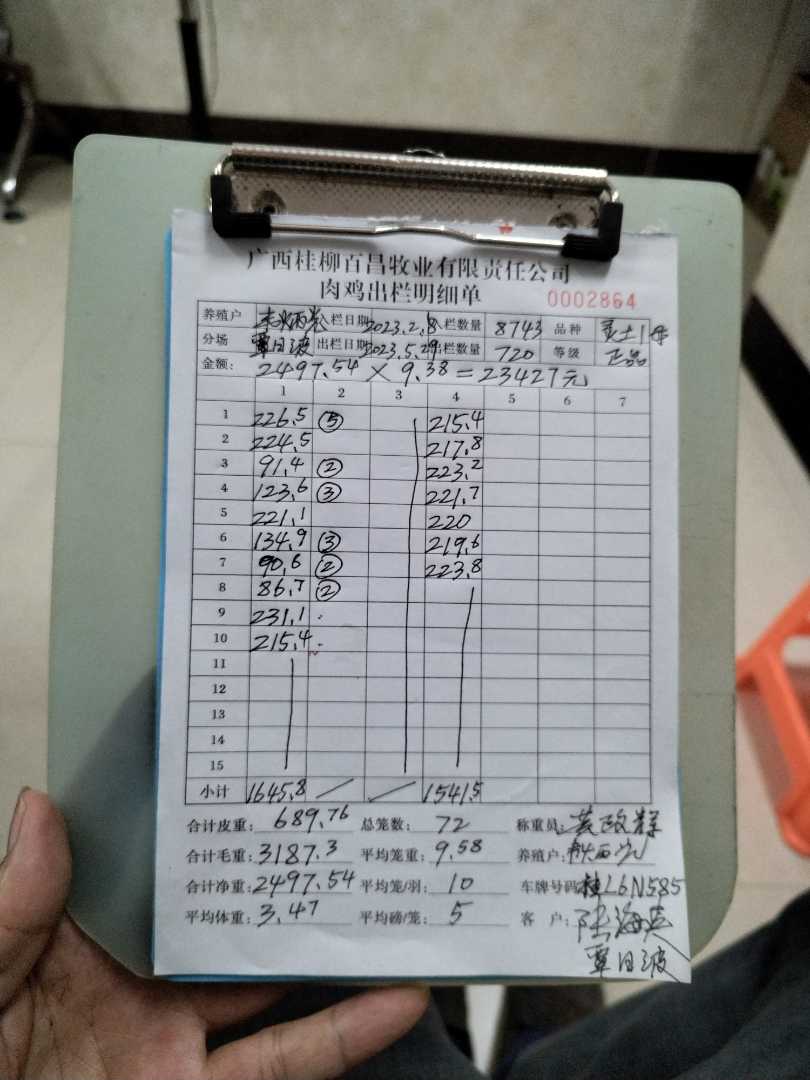 广西桂柳百昌牧业有限责任公司
肉鸡出栏明细单 0002864
养殖户 入栏日期 2023.2.8 入栏数量 8743 品种
分场 覃日波 出栏日期 2023.5.29 出栏数量 720 等级 正品
金额: 2497.54 × 9.38 = 23427元
1 2 3 4 5 6 7
1 226.5 ⑤ 215.4
2 224.5 217.8
3 91.4 ② 223.2
4 123.6 ③ 221.7
5 221.1 220
6 134.9 ③ 219.6
7 90.6 ② 223.8
8 86.7 ②
9 231.1
10 215.4
11
12
13
14
15
小计 1645.8 1541.5
合计皮重: 689.76 总笼数: 72 称重员:
合计毛重: 3187.3 平均笼重: 9.58 养殖户:
合计净重: 2497.54 平均笼/羽: 10 车牌号码: 桂L6N585
平均体重: 3.47 平均磅/笼: 5 客 户: 陆海英
覃日波